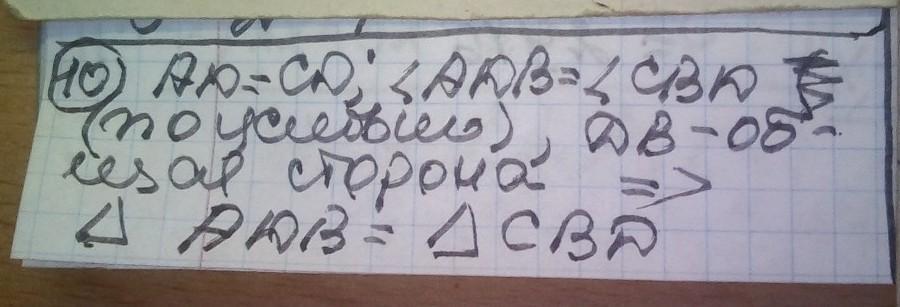 10) AD=CD; <ADB=<CBD
(по условию), DB-об-
щая сторона =>
△ ADB = △ CBD